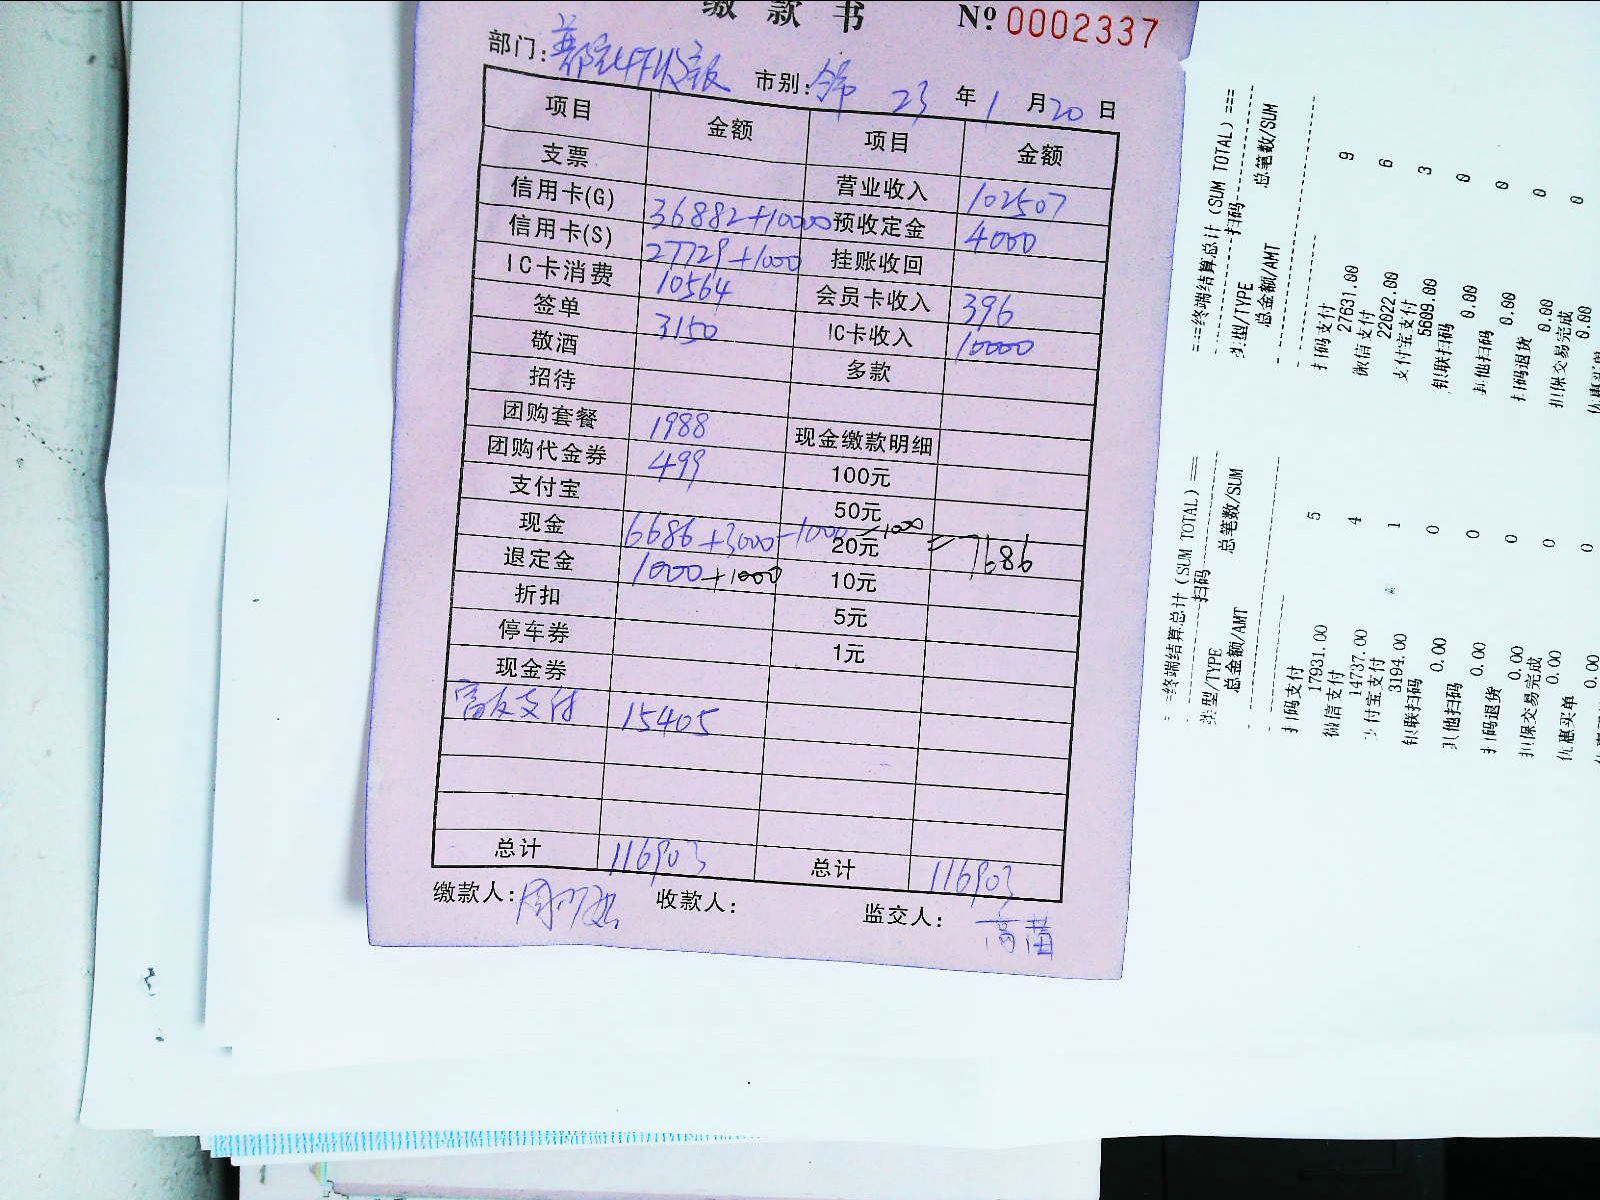 缴 款 书 Nº 0002337
部门: 市别: 23 年 1 月 20 日
项目 金额 项目 金额
支票 营业收入 102507
信用卡(G) 36882+10000 预收定金 4000
信用卡(S) 27729+1000 挂账收回
IC卡消费 10564 会员卡收入 396
签单 3150 IC卡收入 10000
敬酒 多款
招待
团购套餐 1988 现金缴款明细
团购代金券 499 100元
支付宝 50元
现金 6686+3000-1000-1000=7686 20元
退定金 1000+1000 10元
折扣 5元
停车券 1元
现金券
富友支付 15405
总计 116903 总计 116903
缴款人: 收款人: 监交人:
===终端结算总计(SUM TOTAL)===
扫码
类型/TYPE 总笔数/SUM
总金额/AMT
扫码支付 9
27631.00
微信支付 6
22022.00
支付宝支付 3
5609.00
银联扫码 0
0.00
其他扫码 0
0.00
扫码退货 0
0.00
担保交易完成 0
0.00
===终端结算总计(SUM TOTAL)===
扫码
类型/TYPE 总笔数/SUM
总金额/AMT
扫码支付 5
17931.00
微信支付 4
14737.00
支付宝支付 1
3194.00
银联扫码 0
0.00
其他扫码 0
0.00
扫码退货 0
0.00
担保交易完成 0
0.00
优惠买单 0
0.00